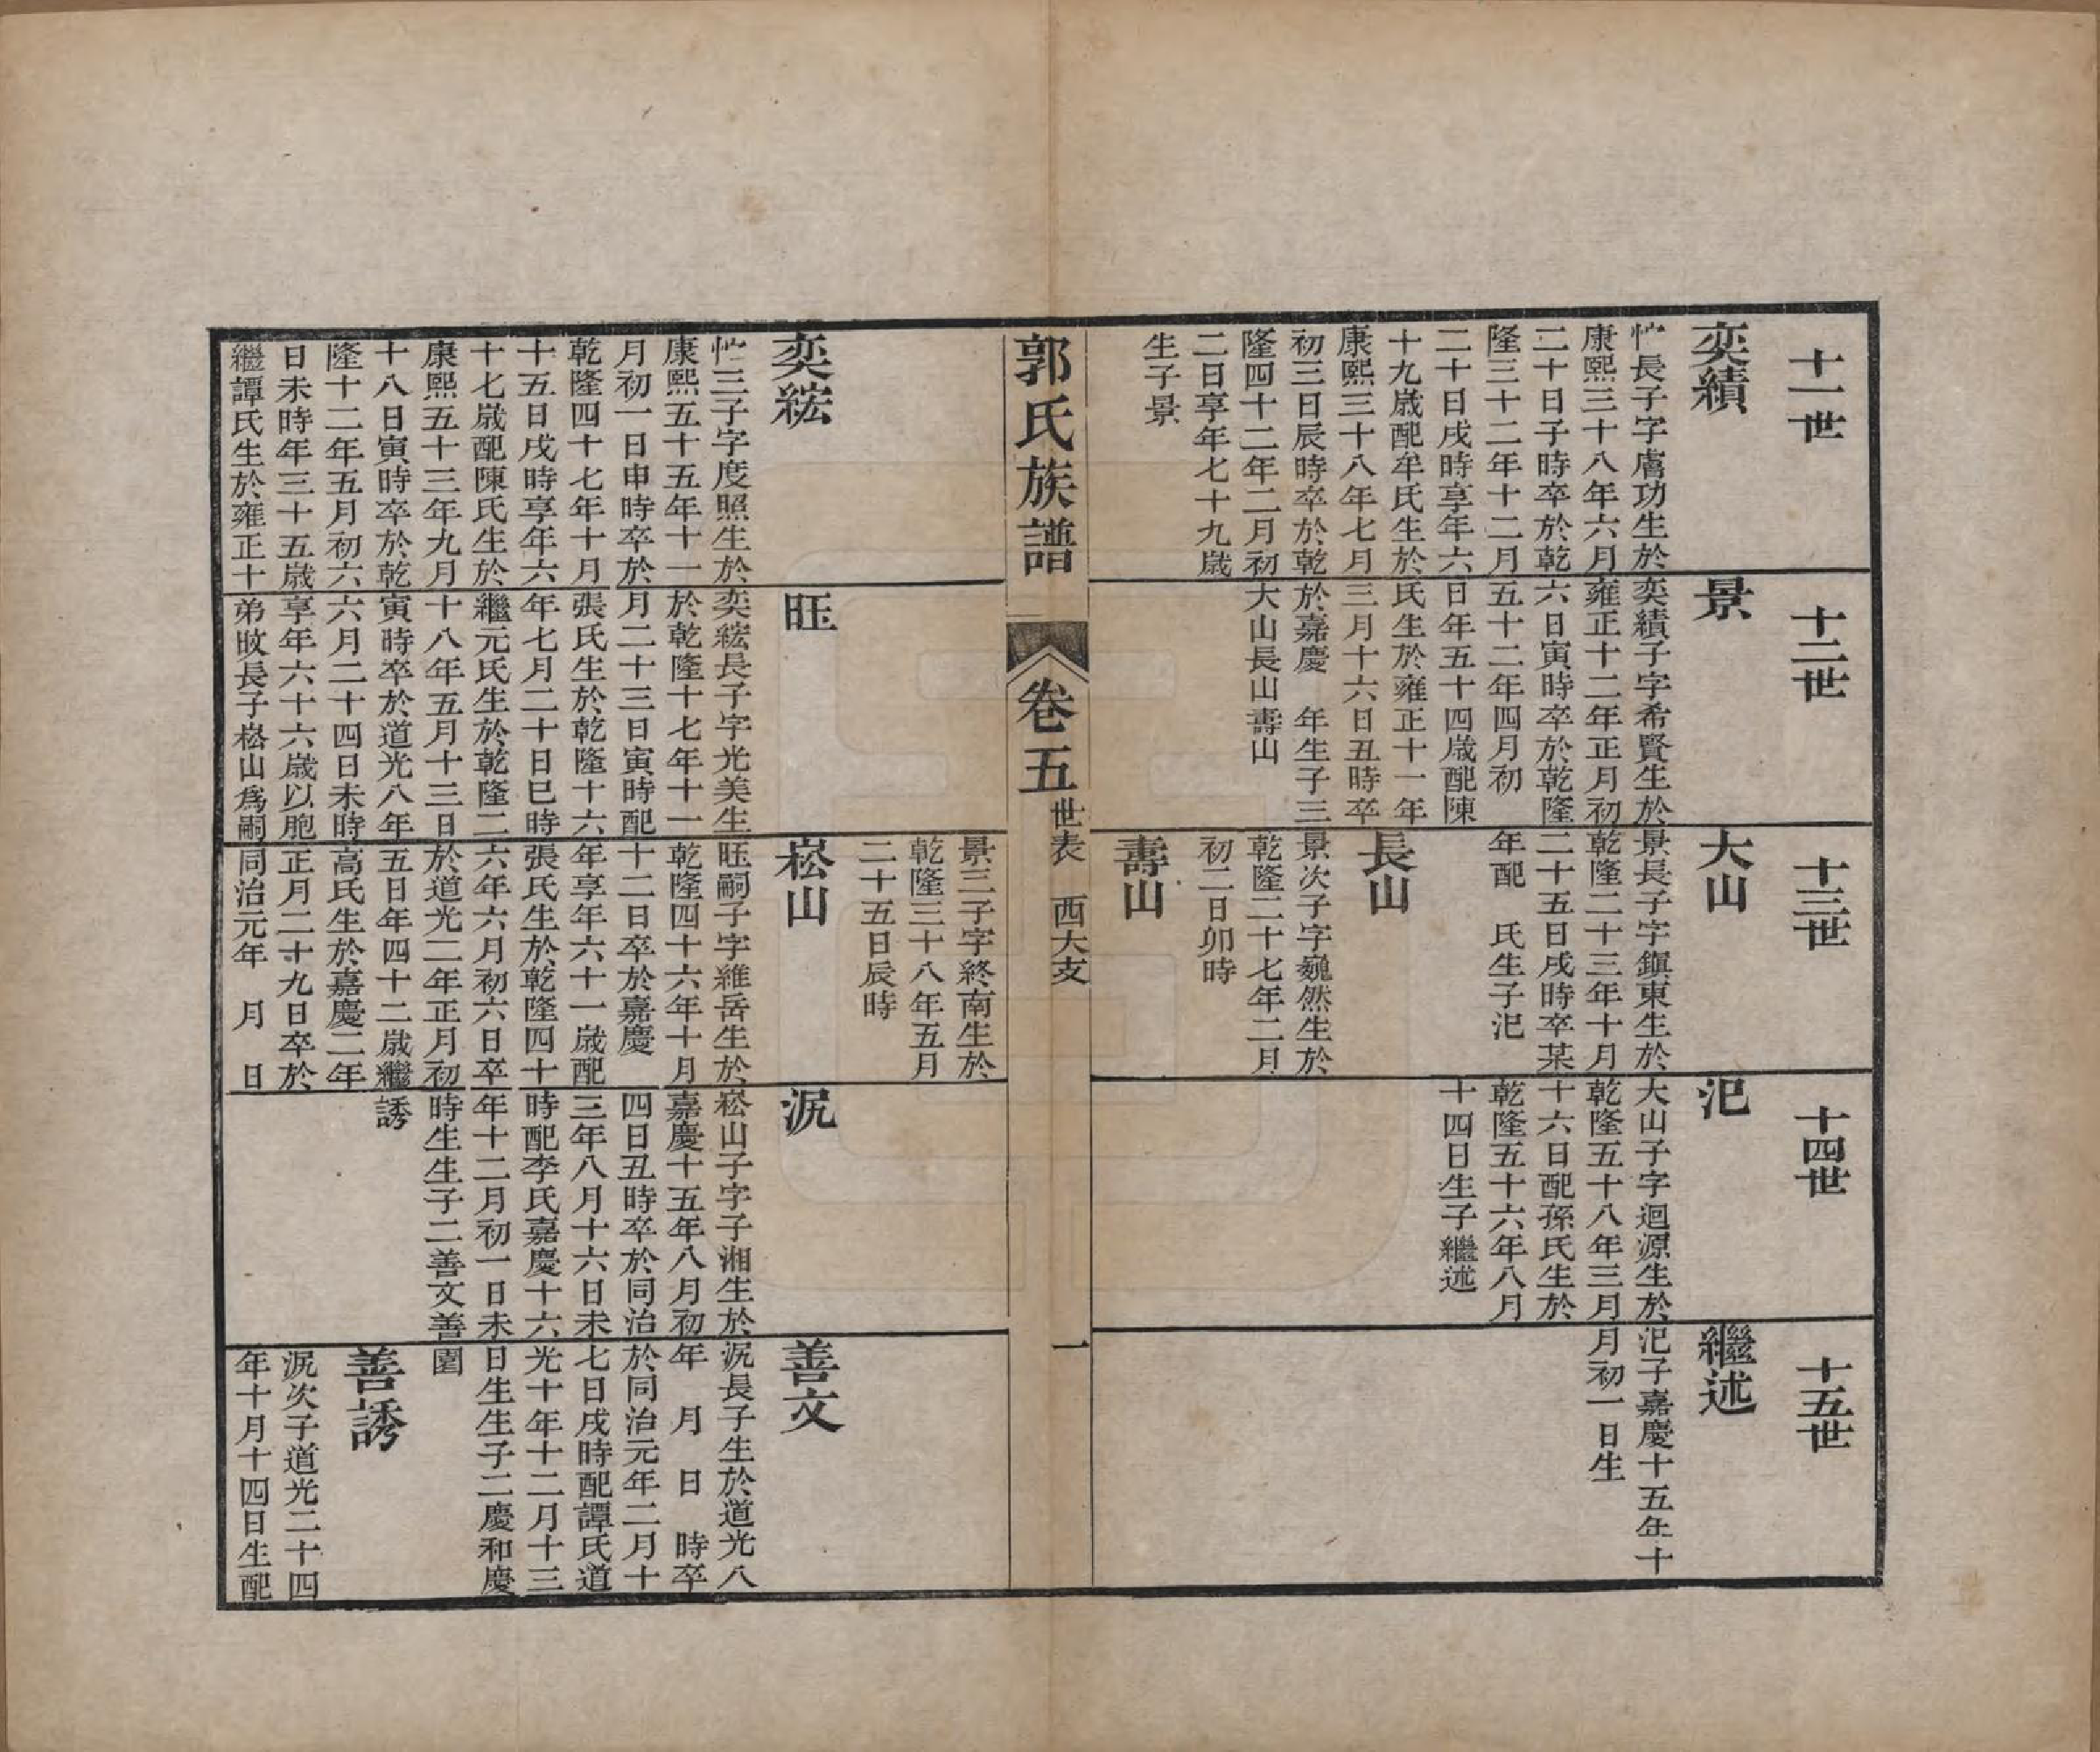 十一世
奕績
忄長子字膚功生於
康熙三十八年六月
二十日子時卒於乾
隆三十二年十二月
二十日戌時享年六
十九歲配牟氏生於
康熙三十八年七月
初三日辰時卒於乾
隆四十二年二月初
二日享年七十九歲
生子景
十二世
景
奕績子字希賢生於
雍正十二年正月初
六日寅時卒於乾隆
五十二年四月初
日年五十四歲配陳
氏生於雍正十一年
三月十六日丑時卒
於嘉慶　年生子三
大山長山壽山
十三世
大山
景長子字鎭東生於
乾隆二十三年十月
二十五日戌時卒某
年配　氏生子汜
長山
景次子字巍然生於
乾隆二十七年二月
初二日卯時
壽山
十四世
汜
大山子字迴源生於
乾隆五十八年三月
十六日配孫氏生於
乾隆五十六年八月
十四日生子繼述
十五世
繼述
汜子嘉慶十五年十
月初一日生
郭氏族譜
卷五
世表　西大支
一
奕綋
三子字度照生於
康熙五十五年十一
月初一日申時卒於
乾隆四十七年十月
十五日戌時享年六
十七歲配陳氏生於
康熙五十三年九月
十八日寅時卒於乾
隆十二年五月初六
日未時年三十五歲
繼譚氏生於雍正十
旺
奕綋長子字光美生
於乾隆十七年十一
月二十三日寅時配
張氏生於乾隆十六
年七月二十日巳時
繼元氏生於乾隆二
十八年五月十三日
寅時卒於道光八年
六月二十四日未時
享年六十六歲以胞
弟旼長子崧山爲嗣
景三子字終南生於
乾隆三十八年五月
二十五日辰時
崧山
旺嗣子字維岳生於
乾隆四十六年十月
十二日卒於嘉慶
年享年六十一歲配
張氏生於乾隆四十
六年六月初六日卒
於道光二年正月初
五日年四十二歲繼
高氏生於嘉慶二年
正月二十九日卒於
同治元年　月　日
泥
崧山子字子湘生於
嘉慶十五年八月初
四日丑時卒於同治
三年八月十六日未
時配李氏嘉慶十六
年十二月初一日未
時生生子二善文善
誘
善文
泥長子生於道光八
年　月　日　時卒
於同治元年二月十
七日戌時配譚氏道
光十年十二月十三
日生生子二慶和慶
園
善誘
泥次子道光二十四
年十月十四日生配